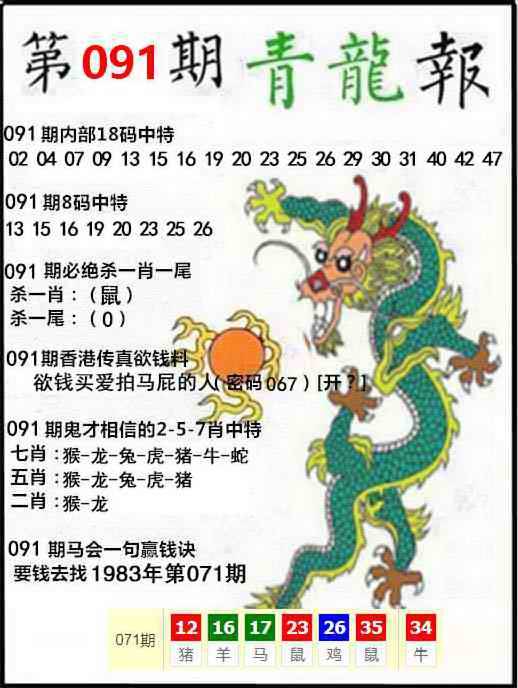 第091期青龍報
091期内部18码中特
02 04 07 09 13 15 16 19 20 23 25 26 29 30 31 40 42 47
091期8码中特
13 15 16 19 20 23 25 26
091 期必绝杀一肖一尾
杀一肖：（鼠）
杀一尾：（0）
091期香港传真欲钱料
欲钱买爱拍马屁的人(密码067)[开？]
091期鬼才相信的2-5-7肖中特
七肖：猴-龙-兔-虎-猪-牛-蛇
五肖：猴-龙-兔-虎-猪
二肖：猴-龙
091 期马会一句赢钱诀
要钱去找1983年第071期
071期 12 16 17 23 26 35 34
猪 羊 马 鼠 鸡 鼠 牛